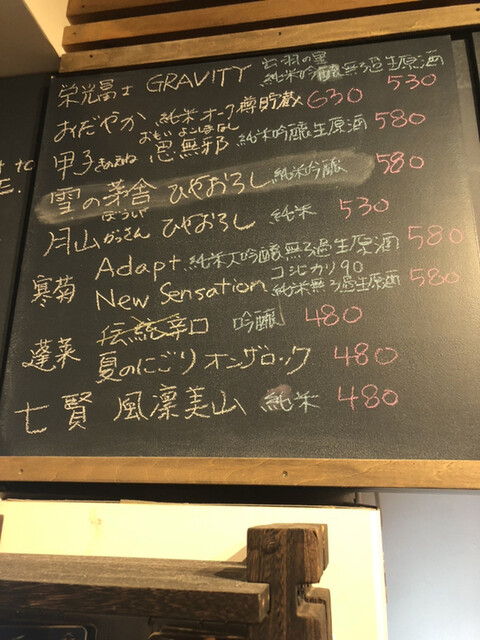 出羽の里
栄光冨士 GRAVITY 純米吟醸無ろ過生原酒 530
おだやか 純米オーク樽貯蔵 630
おもいよこしまなし
甲子きのえね 思無邪 純米吟醸生原酒 580
雪の茅舎 ひやおろし 純米吟醸 580
ぼうしゃ
月山がっさん ひやおろし 純米 530
寒菊 Adapt 純米大吟醸無ろ過生原酒 580
コシヒカリ90
New Sensation 純米無ろ過生原酒 580
蓬莱 伝統辛口 吟醸 480
夏のにごりオンザロック 480
七賢 風凛美山 純米 480